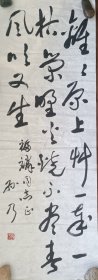 離離原上艸一歲一
枯榮野火燒不盡春
風吹又生
同志正